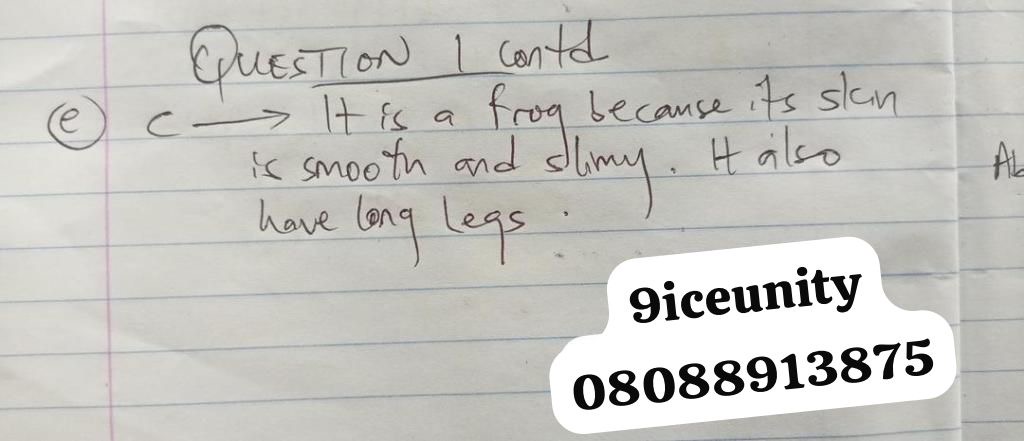 QUESTION 1 Contd
(e) C → It is a frog because its skin
is smooth and slimy. It also
have long legs.
Ab
9iceunity
08088913875